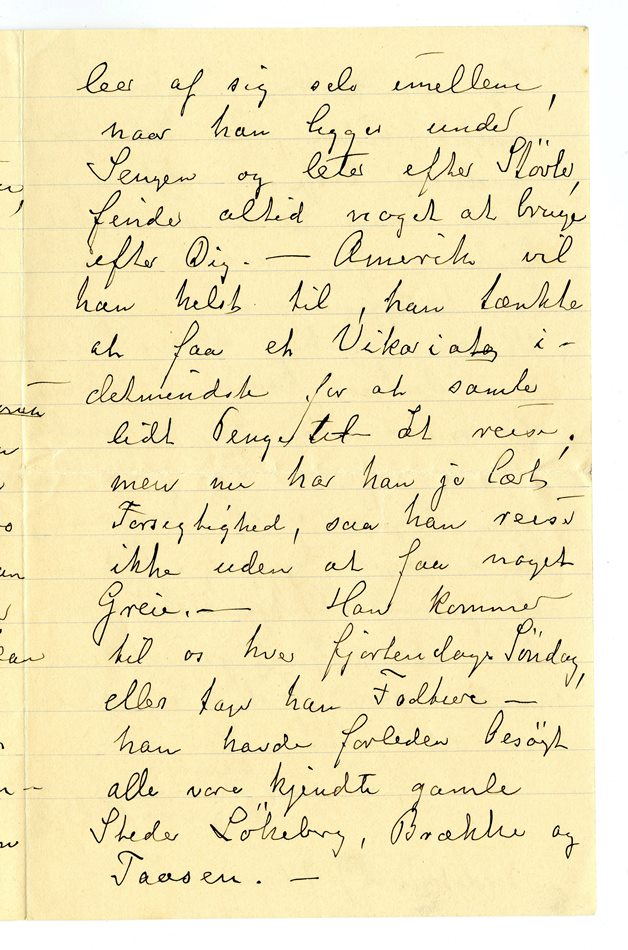 leer af sig selv imellem,
naar han ligger under
Sengen og leter efter Støvler,
finder altid noget at bruge
efter Dig. — Amerika vil
han helst til, han tænkte
at faa et Vikariat i-
detmindste for at samle
lidt Penge til at reise,
men nu har han jo lært
Forsigtighed, saa han reiser
ikke uden at faa noget
Greie. — Han kommer
til os hver fjortendags Söndag,
eller tager han Fodture —
han havde forleden besögt
alle vore kjendte gamle
Steder Lökeberg, Brække og
Taasen. —